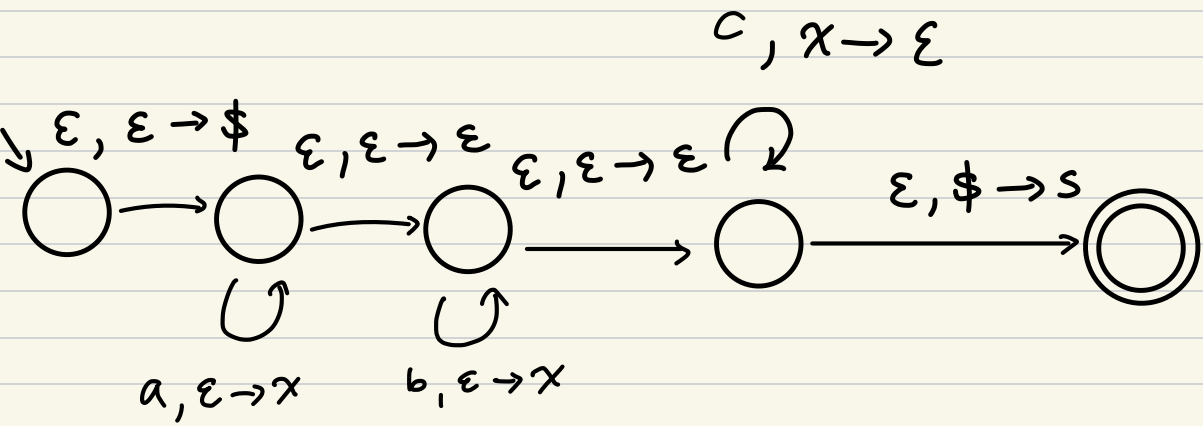 c, x → ε
ε, ε → $
ε, ε → ε
ε, ε → ε
ε, $ → s
a, ε → x
b, ε → x